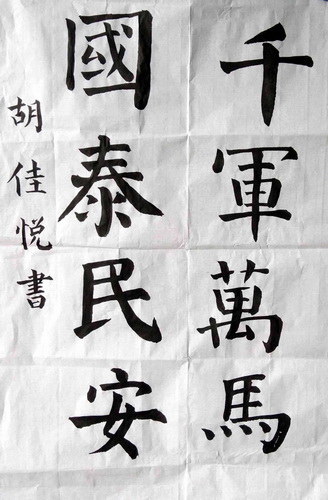 千軍萬馬
國泰民安
胡佳悦書